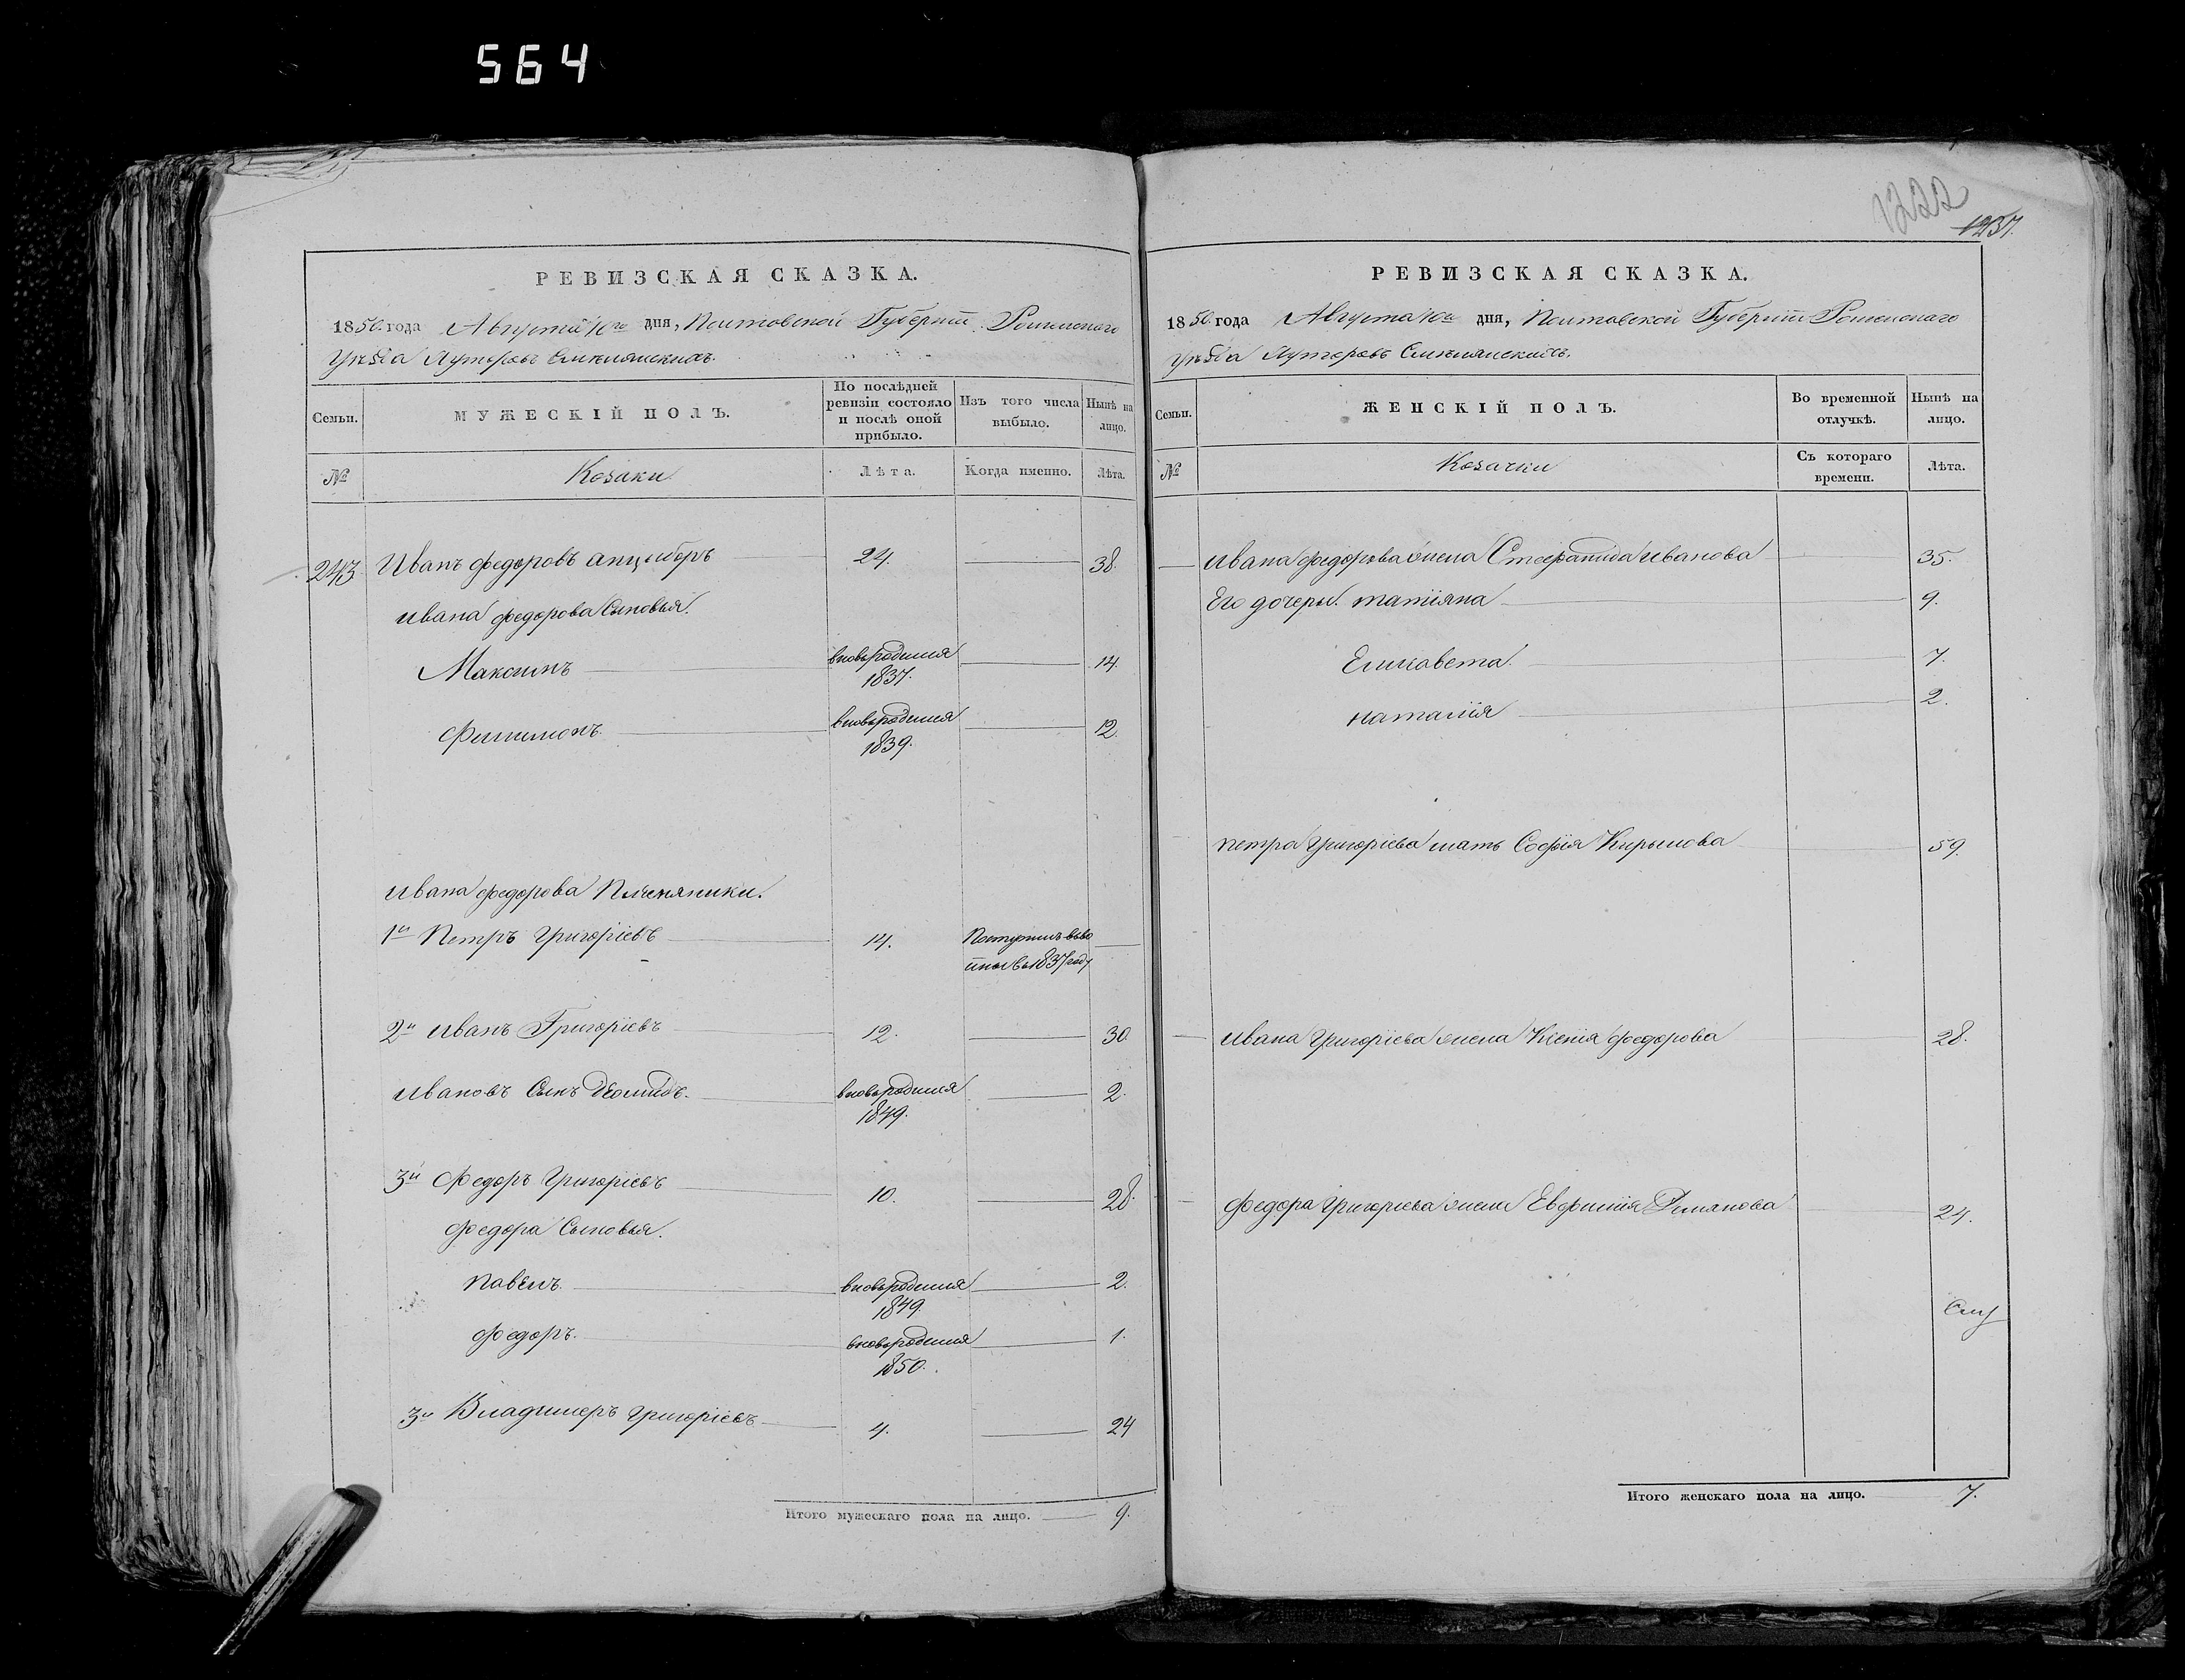 564
РЕВИЗСКАЯ СКАЗКА.
1850 года Августа 10го дня, Полтавской Губерніи Роменскаго
Уѣзда Хуторовъ Смѣлянскихъ.
Семьи.
МУЖЕСКІЙ ПОЛЪ.
По послѣдней ревизіи состояло и послѣ оной прибыло.
Изъ того числа выбыло.
Нынѣ на лицо.
№
Козаки
Лѣта.
Когда именно.
Лѣта.
243 Иванъ Федоровъ Анцыборъ 24. 38.
Ивана Федорова Сыновья.
Максимъ вновьродился 1837. 14.
Филимонъ вновьродился 1839. 12.
Ивана Федорова Племяники.
1й Петръ Григоріевъ 14. Поступилъ въво
ины въ 1837 году
2й Иванъ Григоріевъ 12. 30
Ивановъ Сынъ Деомидъ. вновьродился 1849. 2.
3й Федоръ Григоріевъ 10. 28.
Федора Сыновья.
Павелъ вновьродился 1849. 2.
Федоръ. вновьродился 1850. 1.
3й Владимеръ Григоріевъ 4. 24
Итого мужескаго пола на лицо. 9.
1222
1237.
РЕВИЗСКАЯ СКАЗКА.
1850 года Августа 10го дня, Полтавской Губерніи Роменскаго
Уѣзда Хуторовъ Смѣлянскихъ.
Семьи.
ЖЕНСКІЙ ПОЛЪ.
Во временной отлучкѣ.
Нынѣ на лицо.
№
Козачки
Съ котораго времени.
Лѣта.
Ивана Федорова жена Стефанида Иванова 35.
Его дочери. Татіяна 9.
Елисавета. 7.
Наталія 2.
Петра Григоріева мать Софія Кирылова 59.
Ивана Григоріева жена Ксенія Федорова 28.
Федора Григоріева жена Евфимія Демянова 24.
Итого женскаго пола на лицо. 7.